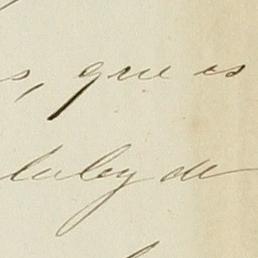 s, que es
la ley de